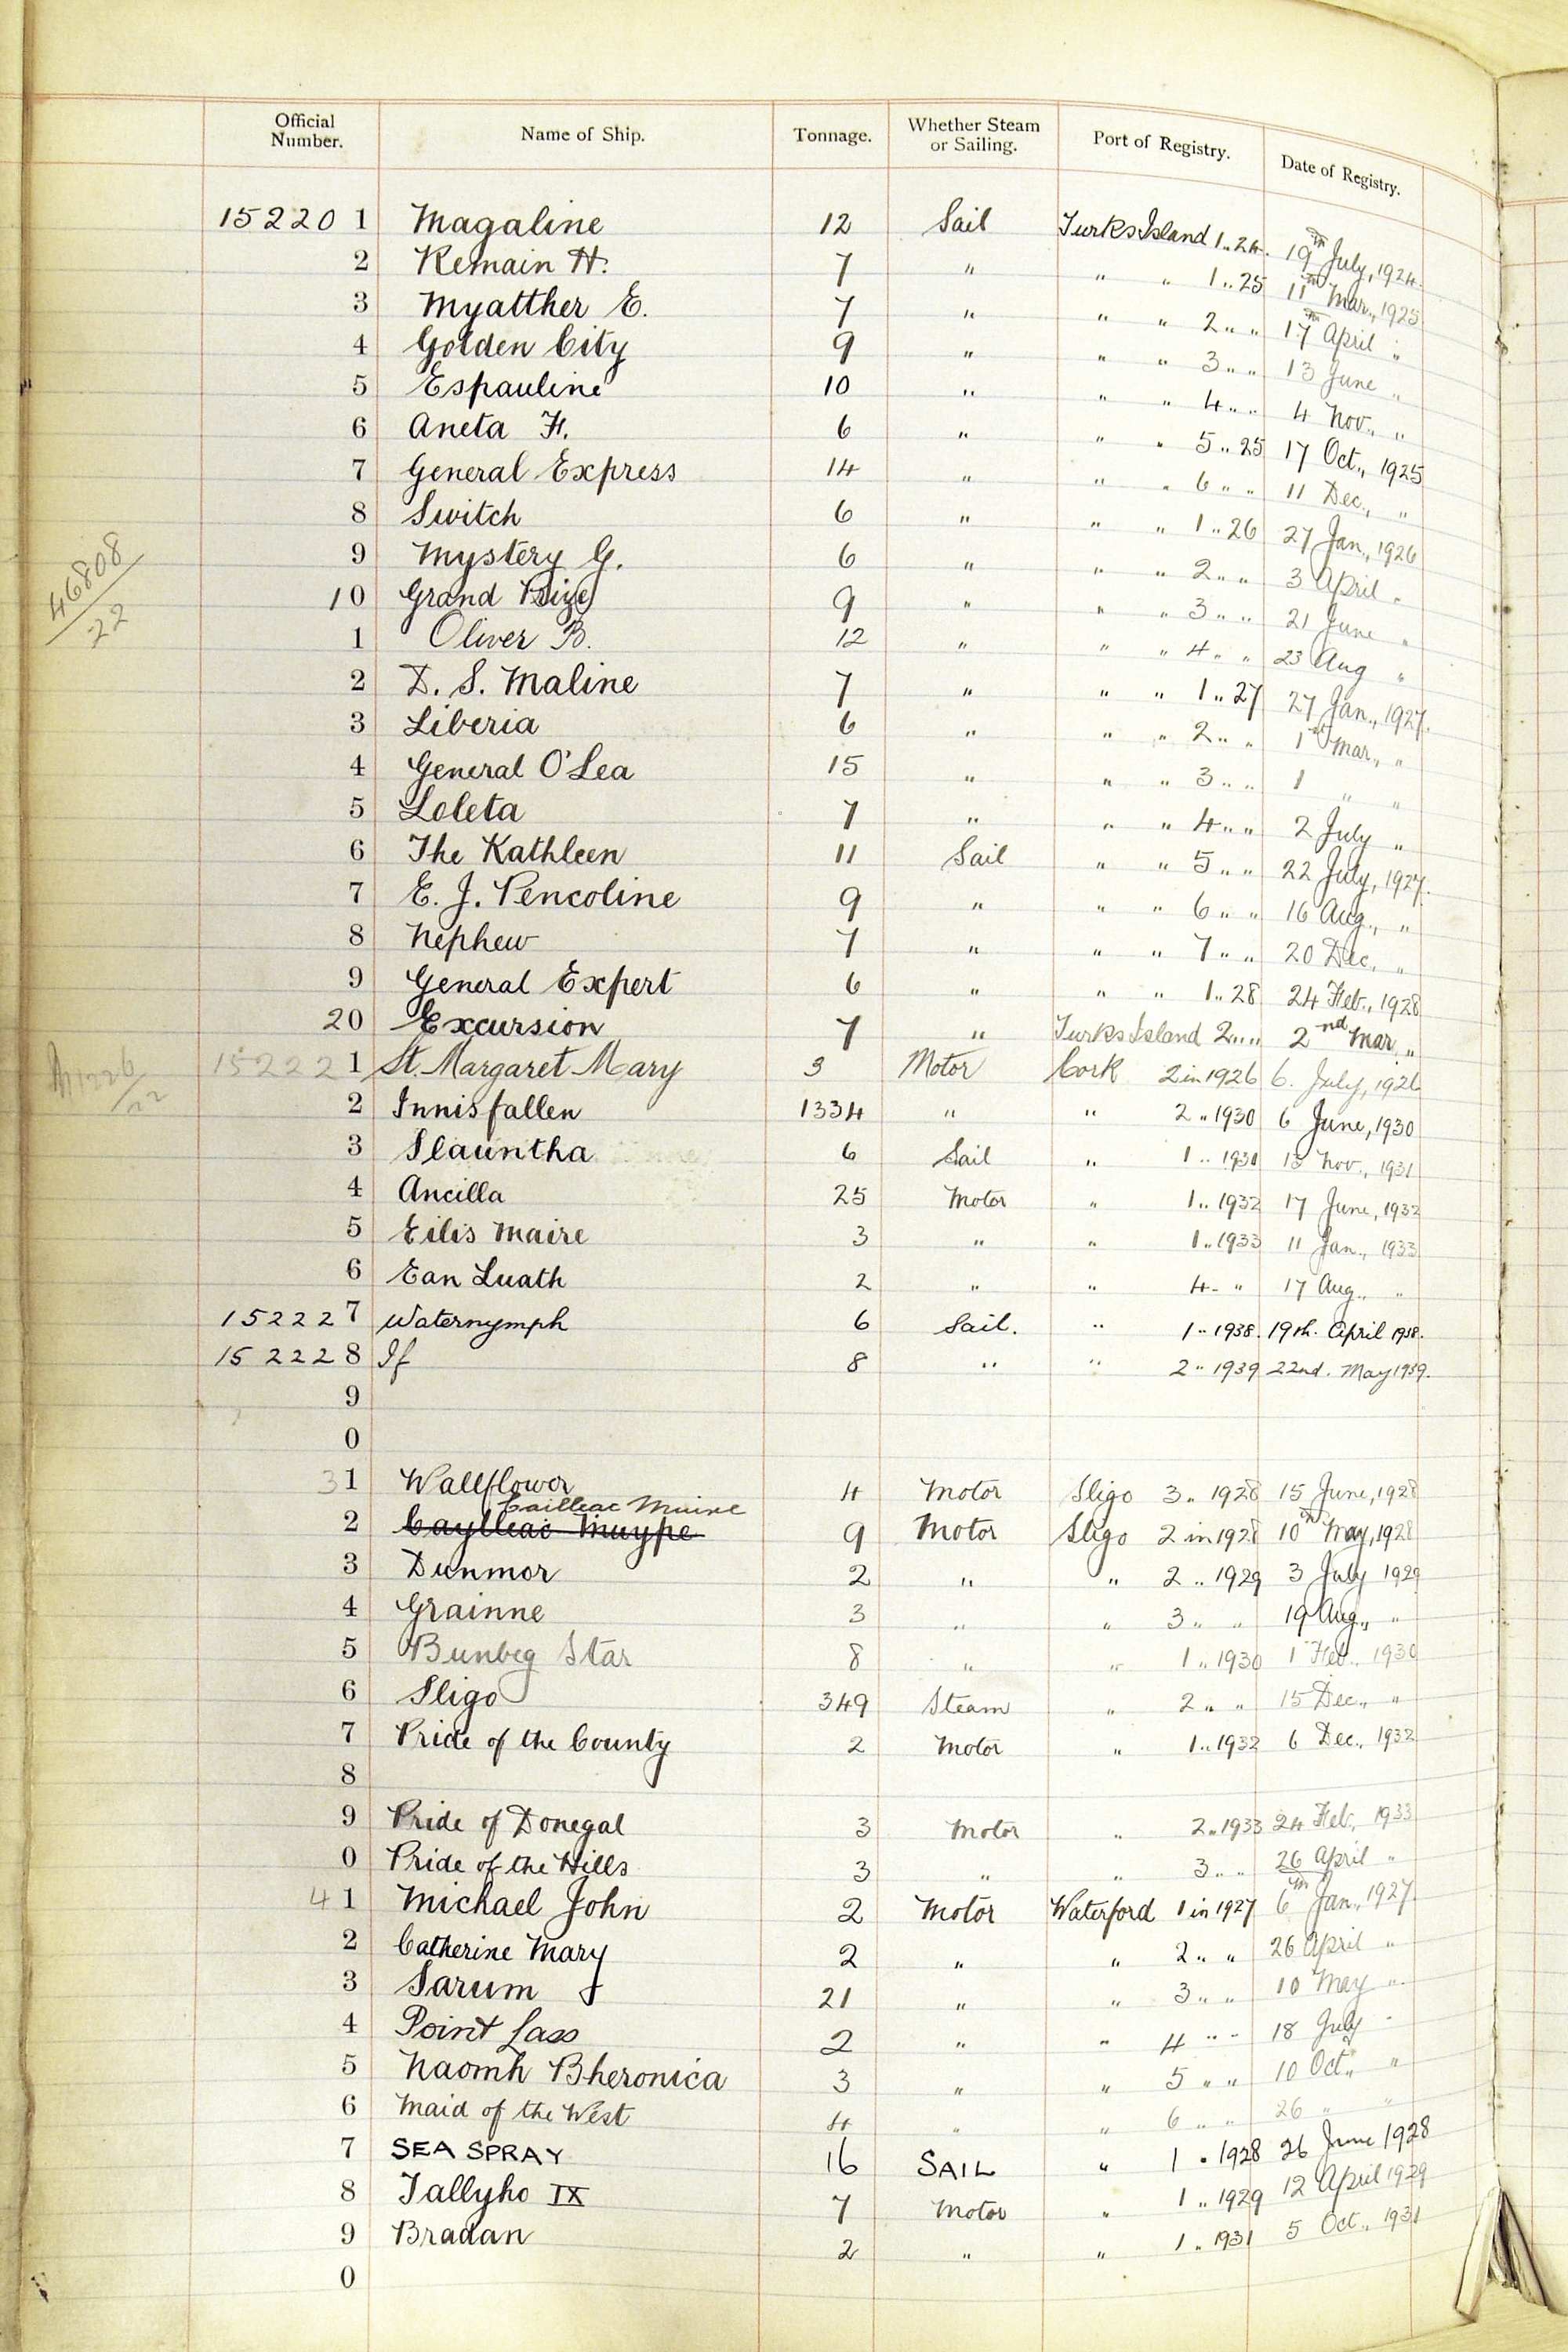 Official Number. Name of Ship. Tonnage. Whether Steam or Sailing. Port of Registry. Date of Registry.
15220 1 Magaline 12 Sail Turks Island 1 .. 24. 19th July, 1924.
2 Remain H. 7 " " " 1 .. 25 11th Mar., 1925
3 Myatther E. 7 " " " 2 " " 17th April "
4 Golden City 9 " " " 3 " " 13 June "
5 Espauline 10 " " " 4 " " 4 Nov., "
6 Aneta F. 6 " " " 5 .. 25 17 Oct., 1925
7 General Express 14 " " " 6 " " 11 Dec., "
8 Switch 6 " " " 1 .. 26 27 Jan., 1926
9 Mystery G. 6 " " " 2 " " 3 April "
46808/22
10 Grand 9 " " " 3 " " 21 June "
1 Oliver B. 12 " " " 4 " " 23 Aug "
2 D. S. Maline 7 " " " 1 .. 27 27 Jan., 1927.
3 Liberia 6 " " " 2 " " 1st Mar., "
4 General O'Lea 15 " " " 3 " " 1 " "
5 Loleta 7 " " " 4 " " 2 July "
6 The Kathleen 11 Sail " " 5 " " 22 July, 1927.
7 E. J. Pencoline 9 " " " 6 " " 16 Aug., "
8 Nephew 7 " " " 7 " " 20 Dec. "
9 General Expert 6 " " " 1 .. 28 24 Feb., 1928
20 Excursion 7 " Turks Island 2 " " 2nd Mar "
15222 1 St. Margaret Mary 3 Motor Cork 2 in 1926 6. July, 1926
2 Innisfallen 1334 " " 2 " 1930 6 June, 1930
3 Slauntha 6 Sail " 1 " 1931 13 Nov., 1931
4 Ancilla 25 Motor " 1 .. 1932 17 June, 1932
5 Eilis Maire 3 " " 1 .. 1933 11 Jan., 1933
6 Ean Luath 2 " " 4 - " 17 Aug., "
15222 7 Waternymph 6 Sail. " 1 .. 1938. 19th. April 1938.
15 222 8 If 8 " " 2 " 1939 22nd. May 1939.
9
0
31 Wallflower 4 Motor Sligo 3 " 1928 15 June, 1928
Cailleac Muire
2 Caylleac Muype 9 Motor Sligo 2 in 1928 10th May, 1928
3 Dunmor 2 " " 2 .. 1929 3 July 1929
4 Grainne 3 " " 3 " " 19 Aug., "
5 Bunbeg Star 8 " " 1 .. 1930 1 Feb., 1930
6 Sligo 349 Steam " 2 " " 15 Dec., "
7 Pride of the County 2 Motor " 1 .. 1932 6 Dec., 1932
8
9 Pride of Donegal 3 Motor " 2 .. 1933 24 Feb., 1933
0 Pride of the Hills 3 " " 3 .. " 26 April "
41 Michael John 2 Motor Waterford 1 in 1927 6th Jan., 1927.
2 Catherine Mary 2 " " 2 .. " 26 April "
3 Sarum 21 " " 3 " " 10 May "
4 Point Lass 2 " " 4 " " 18 July "
5 Naomh Bheronica 3 " " 5 " " 10 Oct., "
6 Maid of the West 4 " " 6 " " 26 " "
7 SEA SPRAY 16 SAIL " 1 " 1928 26 June 1928
8 Tallyho IX 7 Motor " 1 .. 1929 12 April 1929
9 Bradan 2 " " 1 " 1931 5 Oct., 1931
0